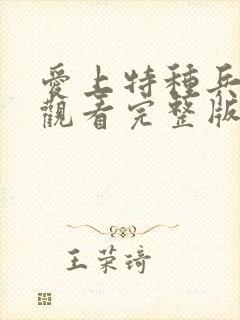 愛上特種兵
觀看完整版
王荣琦